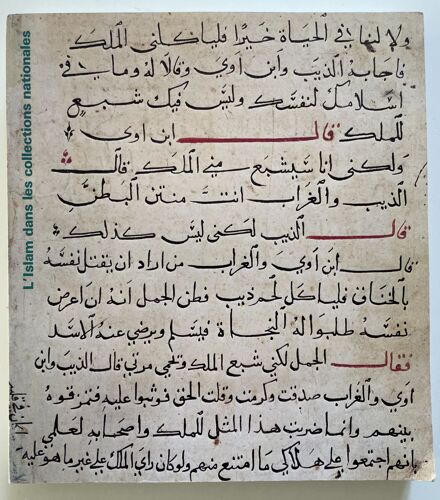 L'Islam dans les collections nationales
ولا لنا في الحياة خيرا فلياكلنى الملك
فاجابه الذيب وابن اوي وقالا له وما في
اكلك لنفسك وليس فيك شبع
للملك قال ابن اوى
ولكنى انا سيشبع منى الملك قال
الذيب والغراب انت منتن البطن
قال الذيب لكنى ليس كذلك
قال ابن اوي والغراب من اراد ان يقتل نفسه
بالخناق فلياكل لحم ذيب فظن الجمل انه ان اعرض
نفسه طلبوا له النجاة فيسلم ويرضي عنه الاسد
فقال الجمل لكني شبع الملك ولحمي مرتي قال الذيب وابن
اوي والغراب صدقت وكرمت وقلت الحق فوثبوا عليه فمزقوه
بينهم وانما ضربت هذا المثل للملك واصحابه لعلمي
بانهم اجتمعوا على هلاكي ما امتنع منهم ولو كان راي الملك على غير ما هو عليه